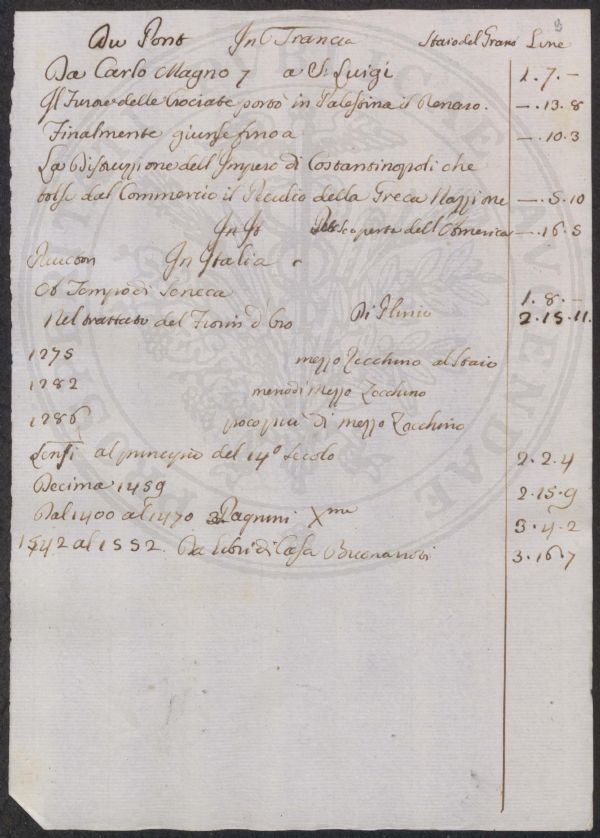 9
Du Pont In Francia Staio del Grano Lire
Da Carlo Magno 7 a S. Luigi 1. 7. –
Il Furore delle Crociate portò in Palestina il Denaro. –. 13. 8
Finalmente giunse fino a –. 10. 3
La Distruzzione dell'Impero di Costantinopoli che
tolse dal Commercio il Peculio della Greca Nazzione –. 5. 10
In It Scoperta dell'America –. 16. 5
In Italia
Tempi di Seneca 1. 8. –
Nel trattato del Fiorin d'Oro Di Plinio 2. 15. 11.
1275 mezzo Zecchino al Staio
1282 meno di Mezzo Zecchino
1286 poco più di mezzo Zecchino
al principio del 14º Secolo 2. 2. 4
Decima 1459 2. 15. 9
Dal 1400 al 1470 Pagnini Xme 3. 4. 2
1542 al 1552. Da libri di Casa Buonarroti 3. 16. 7